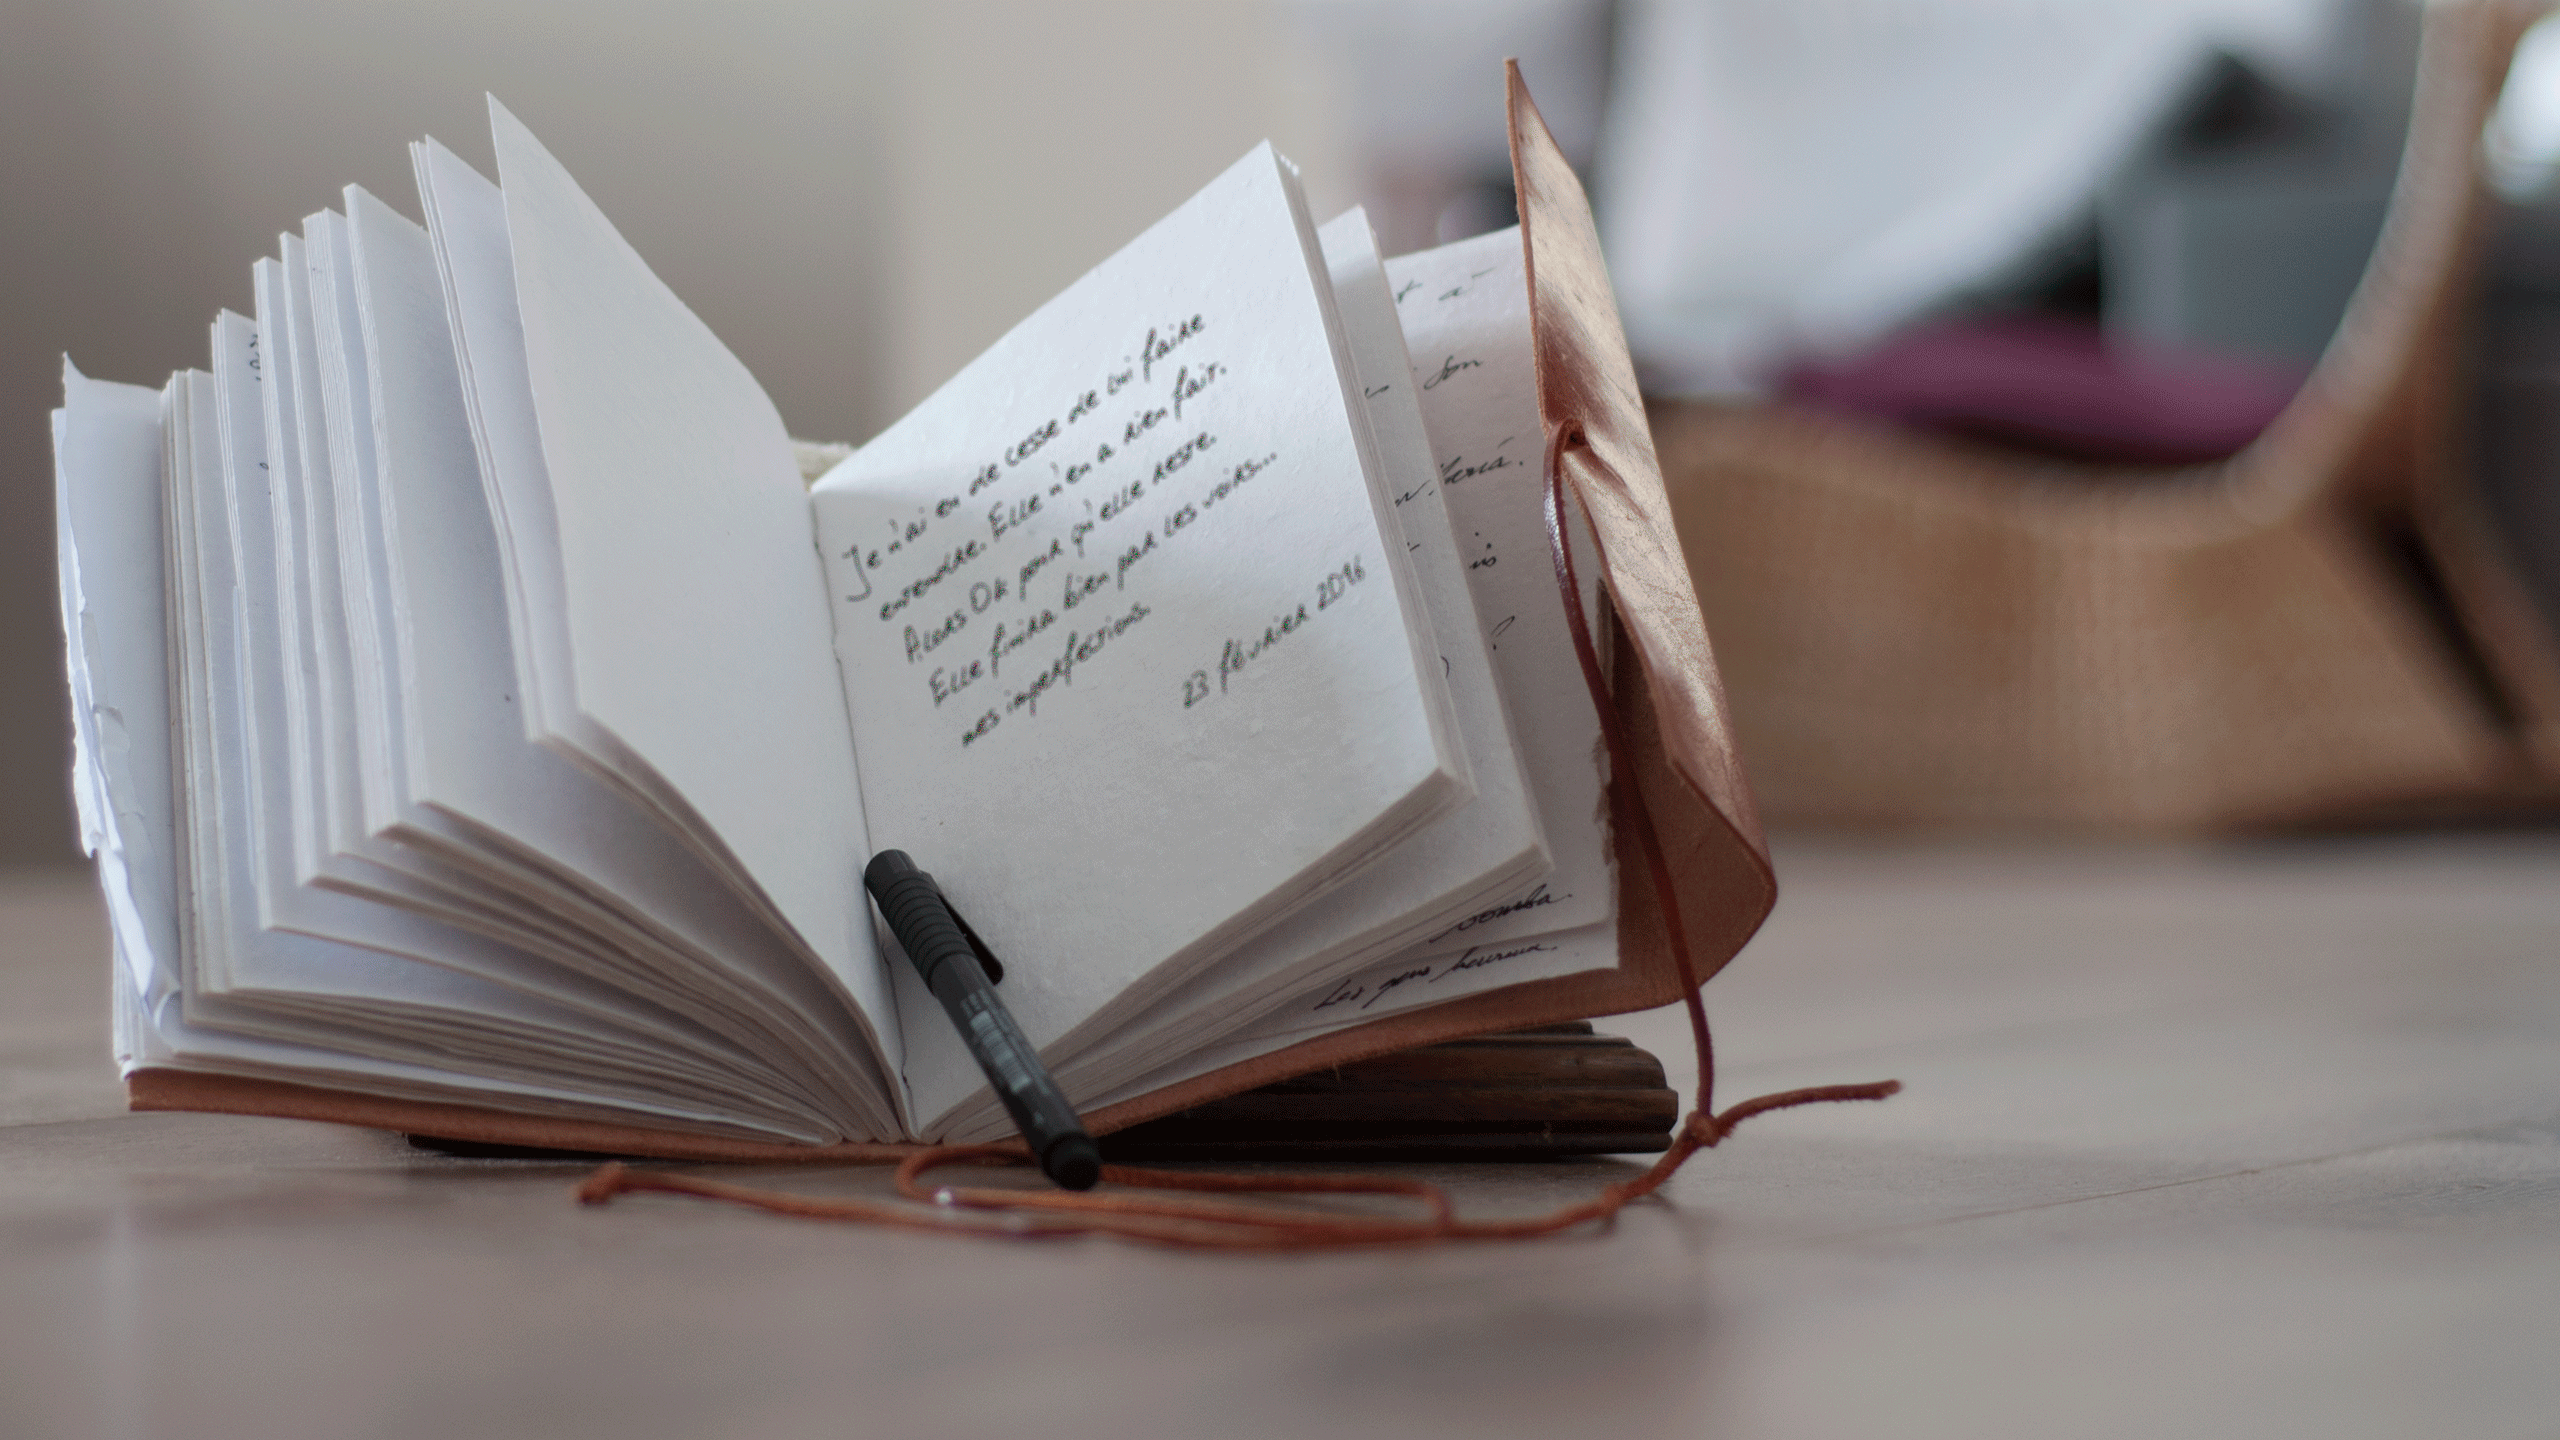 Je n'ai eu de cesse de lui faire
entendre. Elle n'en a rien fait.
Alors Ok pour qu'elle reste.
Elle finira bien par les voirs...
mes imperfections.
23 février 2016
à
son
?
Les gens heureux.